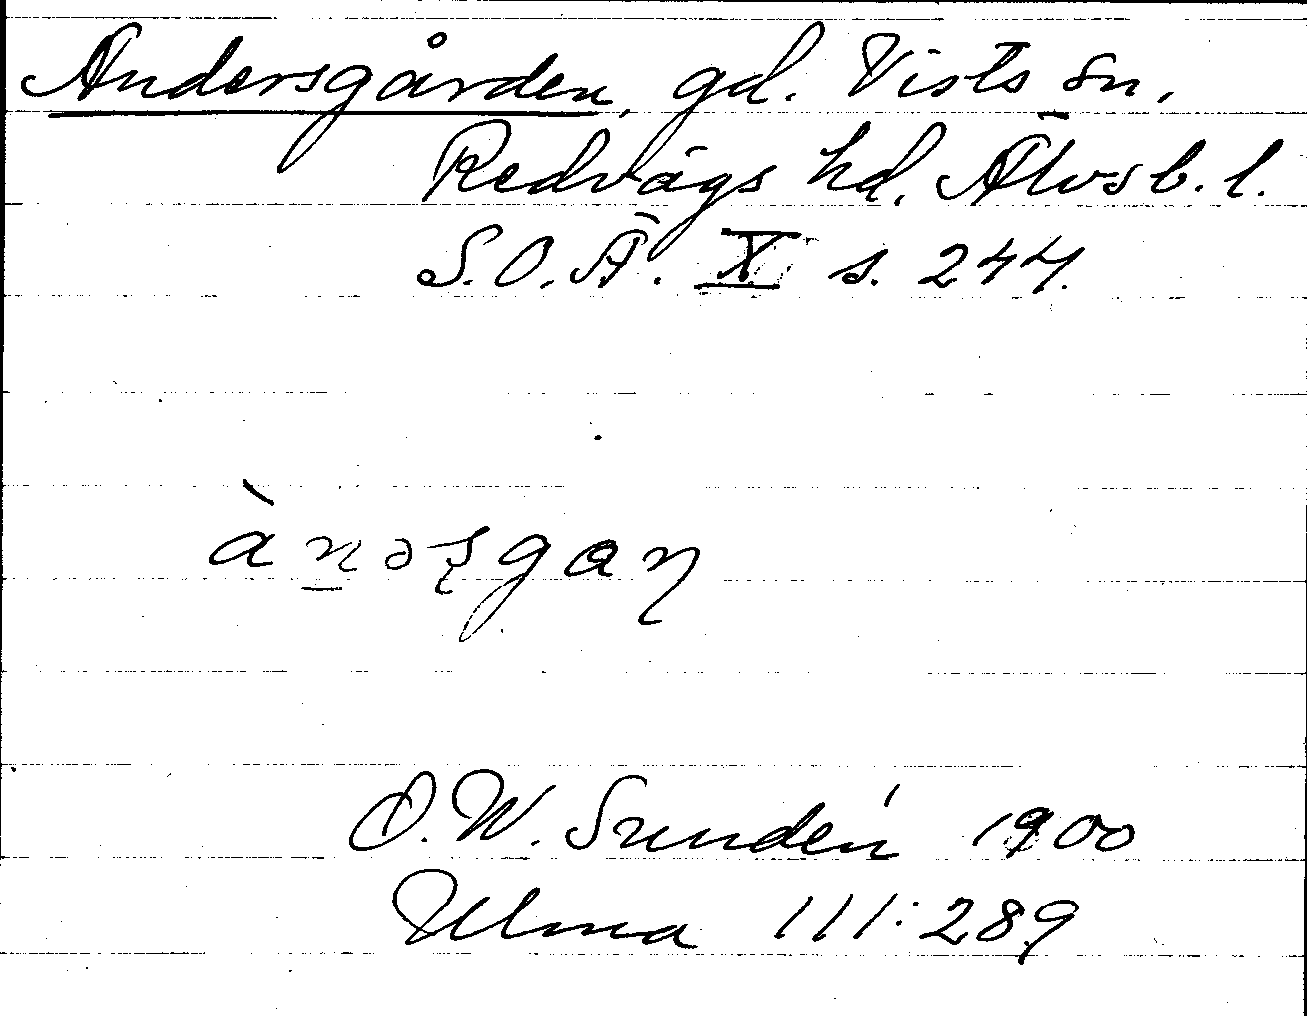 Andersgården, gd. Vists sn,
Redvägs hd, Älvsb. l.
S.O.Ä. X s. 244.
ànəʂgaɳ
D.W. Sundén 1900
Ulma 111:289